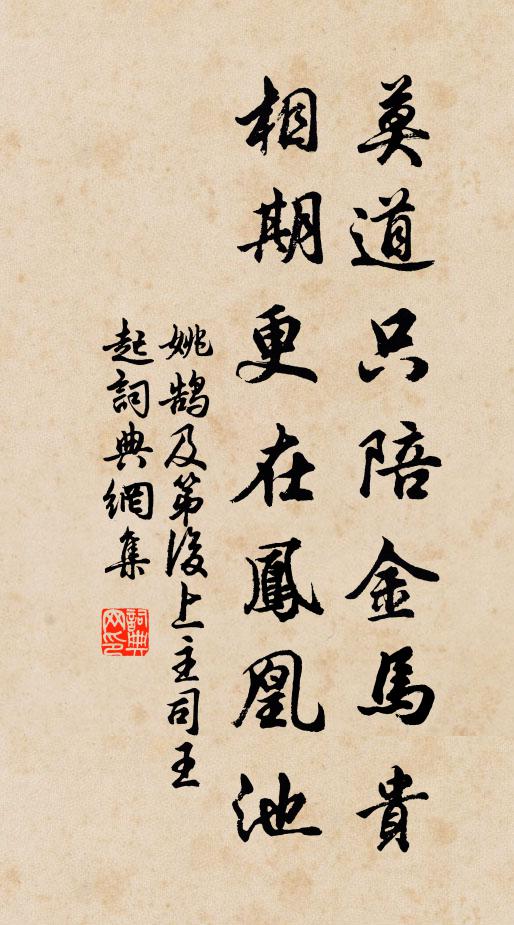 莫道只陪金馬貴
相期更在鳳凰池
姚鵠及第後上主司王
起詞典網集
詞典
网印